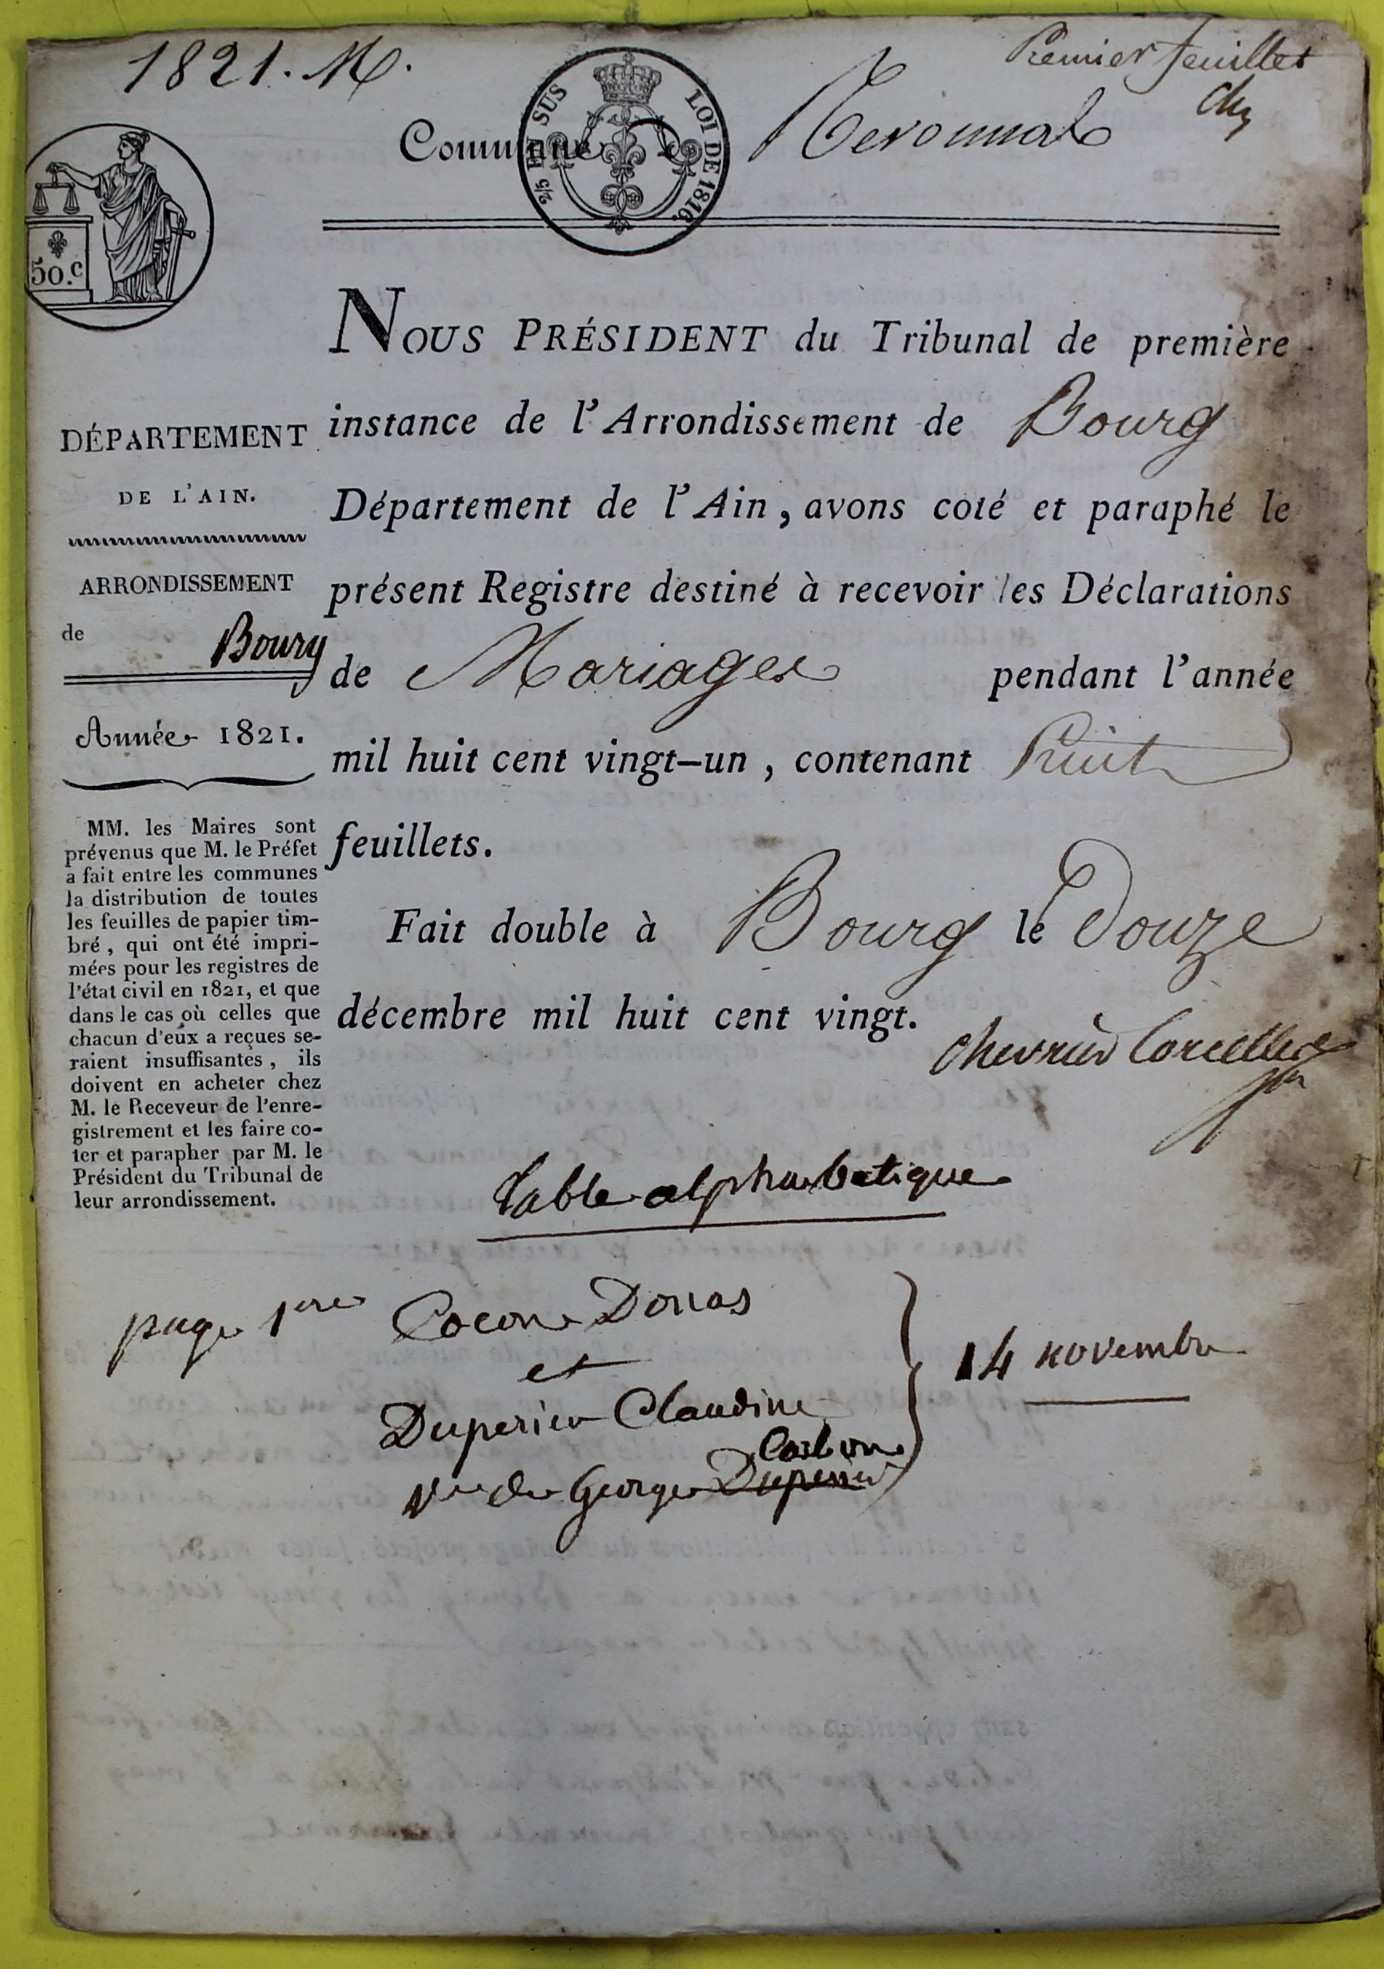 1821. M.
Premier feuillet
Commune de Revonnas
2/5 EN SUS
LOI DE 1816.
50.c
NOUS PRÉSIDENT du Tribunal de première
instance de l'Arrondissement de Bourg
Département de l'Ain, avons coté et paraphé le
présent Registre destiné à recevoir les Déclarations
de Mariages pendant l'année
mil huit cent vingt-un, contenant huit
feuillets.
Fait double à Bourg le Douze
décembre mil huit cent vingt.
Chevrier Corcelles
DÉPARTEMENT
DE L'AIN.
ARRONDISSEMENT
de Bourg
Année 1821.
MM. les Maires sont
prévenus que M. le Préfet
a fait entre les communes
la distribution de toutes
les feuilles de papier tim-
bré, qui ont été impri-
mées pour les registres de
l'état civil en 1821, et que
dans le cas où celles que
chacun d'eux a reçues se-
raient insuffisantes, ils
doivent en acheter chez
M. le Receveur de l'enre-
gistrement et les faire co-
ter et parapher par M. le
Président du Tribunal de
leur arrondissement.
Table alphabetique
page 1ere Cocon Donas
et
Duperier Claudine
14 novembre
Carbon
ve de George Duperier